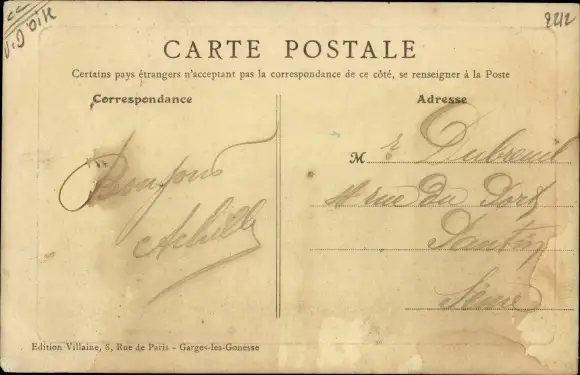 9212
CARTE POSTALE
Certains pays étrangers n'acceptant pas la correspondance de ce côté, se renseigner à la Poste
Correspondance
Bonjour
Achille
Adresse
M r Dubreuil
rue du Port
Pantin
Seine
Edition Villaine, 8, Rue de Paris - Garges-les-Gonesse